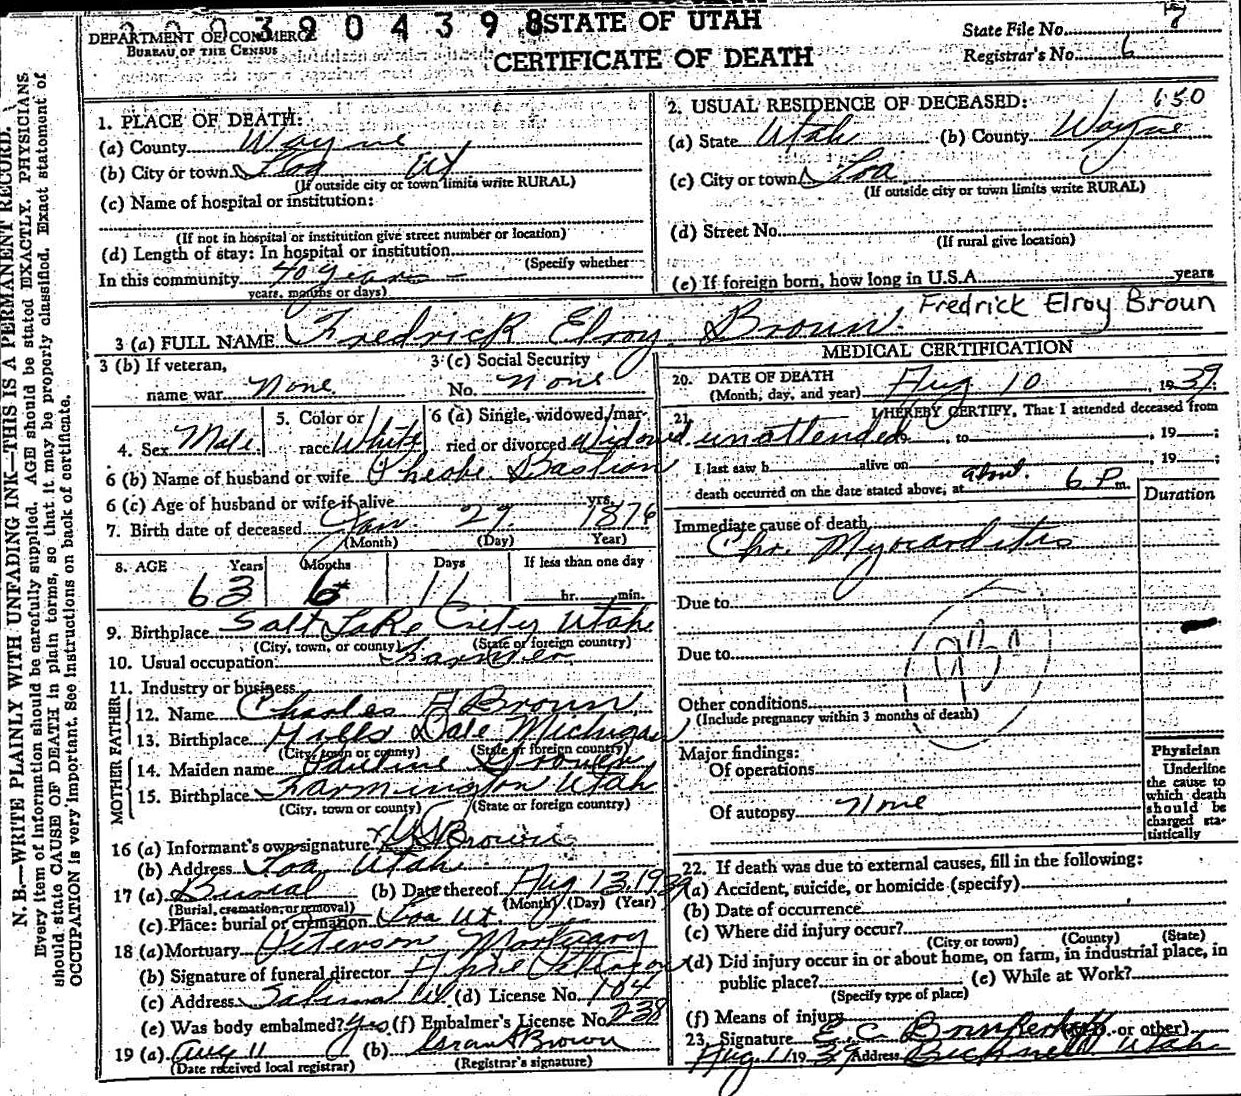 2 0 0 3 9 0 4 3 9 8
STATE OF UTAH
DEPARTMENT OF COMMERCE
BUREAU OF THE CENSUS
CERTIFICATE OF DEATH
State File No. 7
Registrar's No. 6
N. B.—WRITE PLAINLY WITH UNFADING INK—THIS IS A PERMANENT RECORD.
Every item of information should be carefully supplied. AGE should be stated EXACTLY. PHYSICIANS
should state CAUSE OF DEATH in plain terms, so that it may be properly classified. Exact statement of
OCCUPATION is very important. See instructions on back of certificate.
1. PLACE OF DEATH:
(a) County Wayne
(b) City or town Loa Ut
(If outside city or town limits write RURAL)
(c) Name of hospital or institution:
(If not in hospital or institution give street number or location)
(d) Length of stay: In hospital or institution
(Specify whether
In this community 40 years
years, months or days)
2. USUAL RESIDENCE OF DECEASED: 1650
(a) State Utah (b) County Wayne
(c) City or town Loa
(If outside city or town limits write RURAL)
(d) Street No.
(If rural give location)
(e) If foreign born, how long in U.S.A. years
3 (a) FULL NAME Fredrick Elroy Broun. Fredrick Elroy Broun
3 (b) If veteran,
name war None
3 (c) Social Security
No. none
4. Sex Male
5. Color or
race White
6 (a) Single, widowed, mar-
ried or divorced Widowed
6 (b) Name of husband or wife Pheobe Bastian
6 (c) Age of husband or wife if alive yrs.
7. Birth date of deceased Jan 29 1876
(Month) (Day) Year)
8. AGE Years Months Days If less than one day
63 6 11 hr. min.
9. Birthplace Salt Lake City Utah
(City, town, or county) (State or foreign country)
10. Usual occupation Farmer
11. Industry or business
FATHER
12. Name Charles F Broun
13. Birthplace Hills Dale Michigan
(City, town or county) (State or foreign country)
MOTHER
14. Maiden name Pauline
15. Birthplace Farmington Utah
(City, town or county) (State or foreign country)
16 (a) Informant's own signature Brown
(b) Address Loa, Utah
17 (a) Burial (b) Date thereof Aug 13, 1939
(Burial, cremation, or removal) (Month) (Day) (Year)
(c) Place: burial or cremation Loa Ut.
18 (a) Mortuary Peterson Mortuary
(b) Signature of funeral director
(c) Address Salina Ut. (d) License No. 104
(e) Was body embalmed? Yes (f) Embalmer's License No. 238
19 (a) Aug 11 (b) Brown
(Date received local registrar) (Registrar's signature)
MEDICAL CERTIFICATION
20. DATE OF DEATH
(Month, day, and year) Aug 10, 1939;
21. I HEREBY CERTIFY, That I attended deceased from
unattended, to , 19 ;
I last saw h alive on , 19 ;
death occurred on the date stated above, at about 6 P. m.
Duration
Immediate cause of death
Chr. Myocarditis
Due to
Due to
Other conditions
(Include pregnancy within 3 months of death)
Major findings:
Of operations
Of autopsy None
Physician
Underline
the cause to
which death
should be
charged sta-
tistically
22. If death was due to external causes, fill in the following:
(a) Accident, suicide, or homicide (specify)
(b) Date of occurrence
(c) Where did injury occur?
(City or town) (County) (State)
(d) Did injury occur in or about home, on farm, in industrial place, in
public place? (e) While at Work?
(Specify type of place)
(f) Means of injury
23. Signature E. C. (M.D. or other)
Aug 11 1939 Address Bicknell Utah